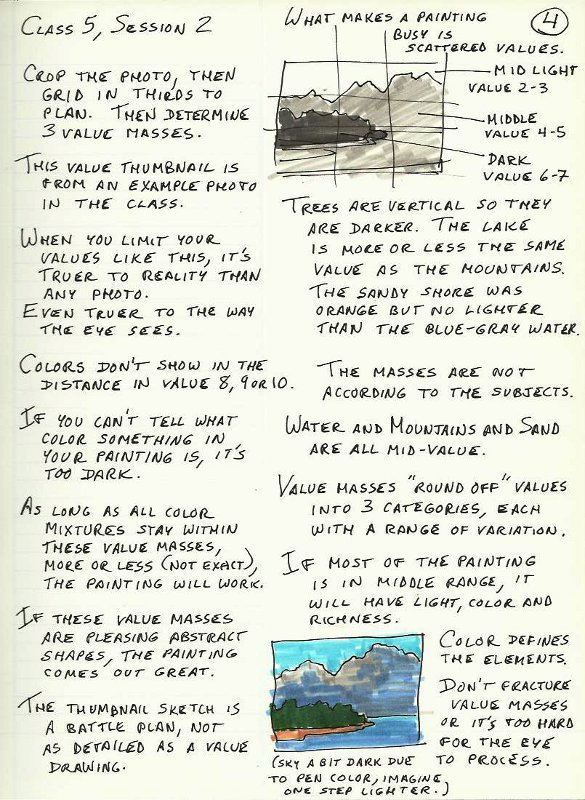 CLASS 5, SESSION 2
CROP THE PHOTO, THEN
GRID IN THIRDS TO
PLAN. THEN DETERMINE
3 VALUE MASSES.
THIS VALUE THUMBNAIL IS
FROM AN EXAMPLE PHOTO
IN THE CLASS.
WHEN YOU LIMIT YOUR
VALUES LIKE THIS, IT'S
TRUER TO REALITY THAN
ANY PHOTO.
EVEN TRUER TO THE WAY
THE EYE SEES.
COLORS DON'T SHOW IN THE
DISTANCE IN VALUE 8, 9 OR 10.
IF YOU CAN'T TELL WHAT
COLOR SOMETHING IN
YOUR PAINTING IS, IT'S
TOO DARK.
AS LONG AS ALL COLOR
MIXTURES STAY WITHIN
THESE VALUE MASSES,
MORE OR LESS (NOT EXACT),
THE PAINTING WILL WORK.
IF THESE VALUE MASSES
ARE PLEASING ABSTRACT
SHAPES, THE PAINTING
COMES OUT GREAT.
THE THUMBNAIL SKETCH IS
A BATTLE PLAN, NOT
AS DETAILED AS A VALUE
DRAWING.
4
WHAT MAKES A PAINTING
BUSY IS
SCATTERED VALUES.
MID LIGHT
VALUE 2-3
MIDDLE
VALUE 4-5
DARK
VALUE 6-7
TREES ARE VERTICAL SO THEY
ARE DARKER. THE LAKE
IS MORE OR LESS THE SAME
VALUE AS THE MOUNTAINS.
THE SANDY SHORE WAS
ORANGE BUT NO LIGHTER
THAN THE BLUE-GRAY WATER.
THE MASSES ARE NOT
ACCORDING TO THE SUBJECTS.
WATER AND MOUNTAINS AND SAND
ARE ALL MID-VALUE.
VALUE MASSES "ROUND OFF" VALUES
INTO 3 CATEGORIES, EACH
WITH A RANGE OF VARIATION.
IF MOST OF THE PAINTING
IS IN MIDDLE RANGE, IT
WILL HAVE LIGHT, COLOR AND
RICHNESS.
COLOR DEFINES
THE ELEMENTS.
DON'T FRACTURE
VALUE MASSES
OR IT'S TOO HARD
FOR THE EYE
TO PROCESS.
(SKY A BIT DARK DUE
TO PEN COLOR, IMAGINE
ONE STEP LIGHTER.)